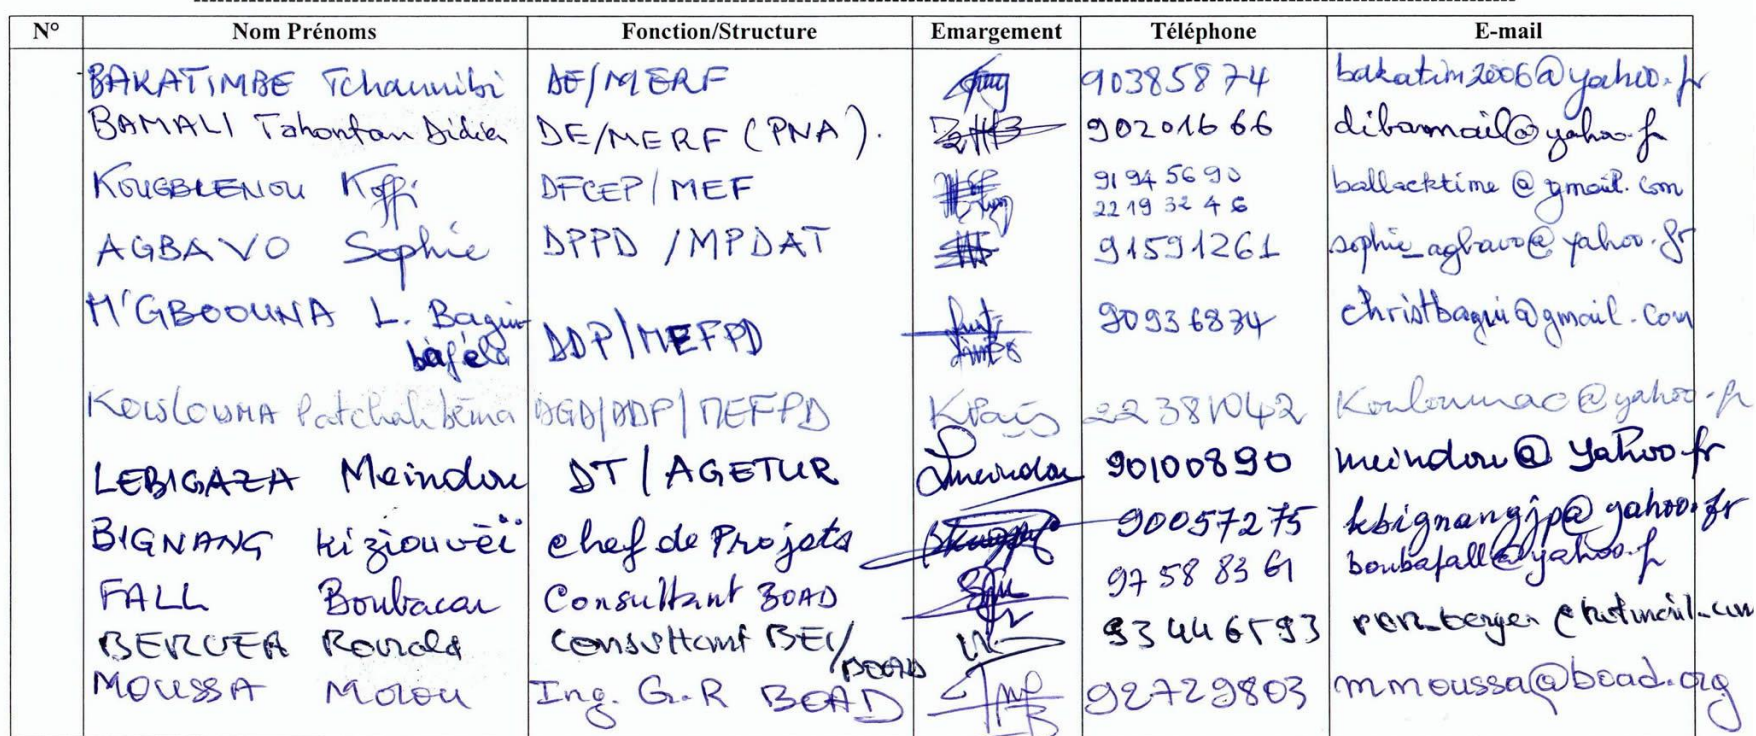 N° Nom Prénoms Fonction/Structure Emargement Téléphone E-mail
BAKATIMBE Tchannibi DE/MERF 90385874 bakatim2006@yahoo.fr
BAMALI Tahontan Didier DE/MERF (PNA). 90201666 dibamail@yahoo.fr
KOUGBLENOU Koffi DFCEP/MEF 91945690 ballacktime@gmail.com
22193246
AGBAVO Sophie DPPD/MPDAT 91591261 sophie_agbavo@yahoo.fr
M'GBOOUNA L. Bagui- DDP/MEFPD 90936834 christbagui@gmail.com
baféla
KOULOUMA Patchalibèma DGD/DDP/MEFPD 22381042 Kouloumac@yahoo.fr
LEBIGAZA Meindou DT/AGETUR 90100890 meindou@yahoo.fr
BIGNANG Kiziouvèï chef de Projets 90057275 kbignangjp@yahoo.fr
FALL Boubacar Consultant BOAD 97588361 boubafall@yahoo.fr
BERGER Ronald Consultant BEI/ 93446593 @hotmail.com
BOAD
MOUSSA Molou Ing. G.R BOAD 92729803 mmoussa@boad.org